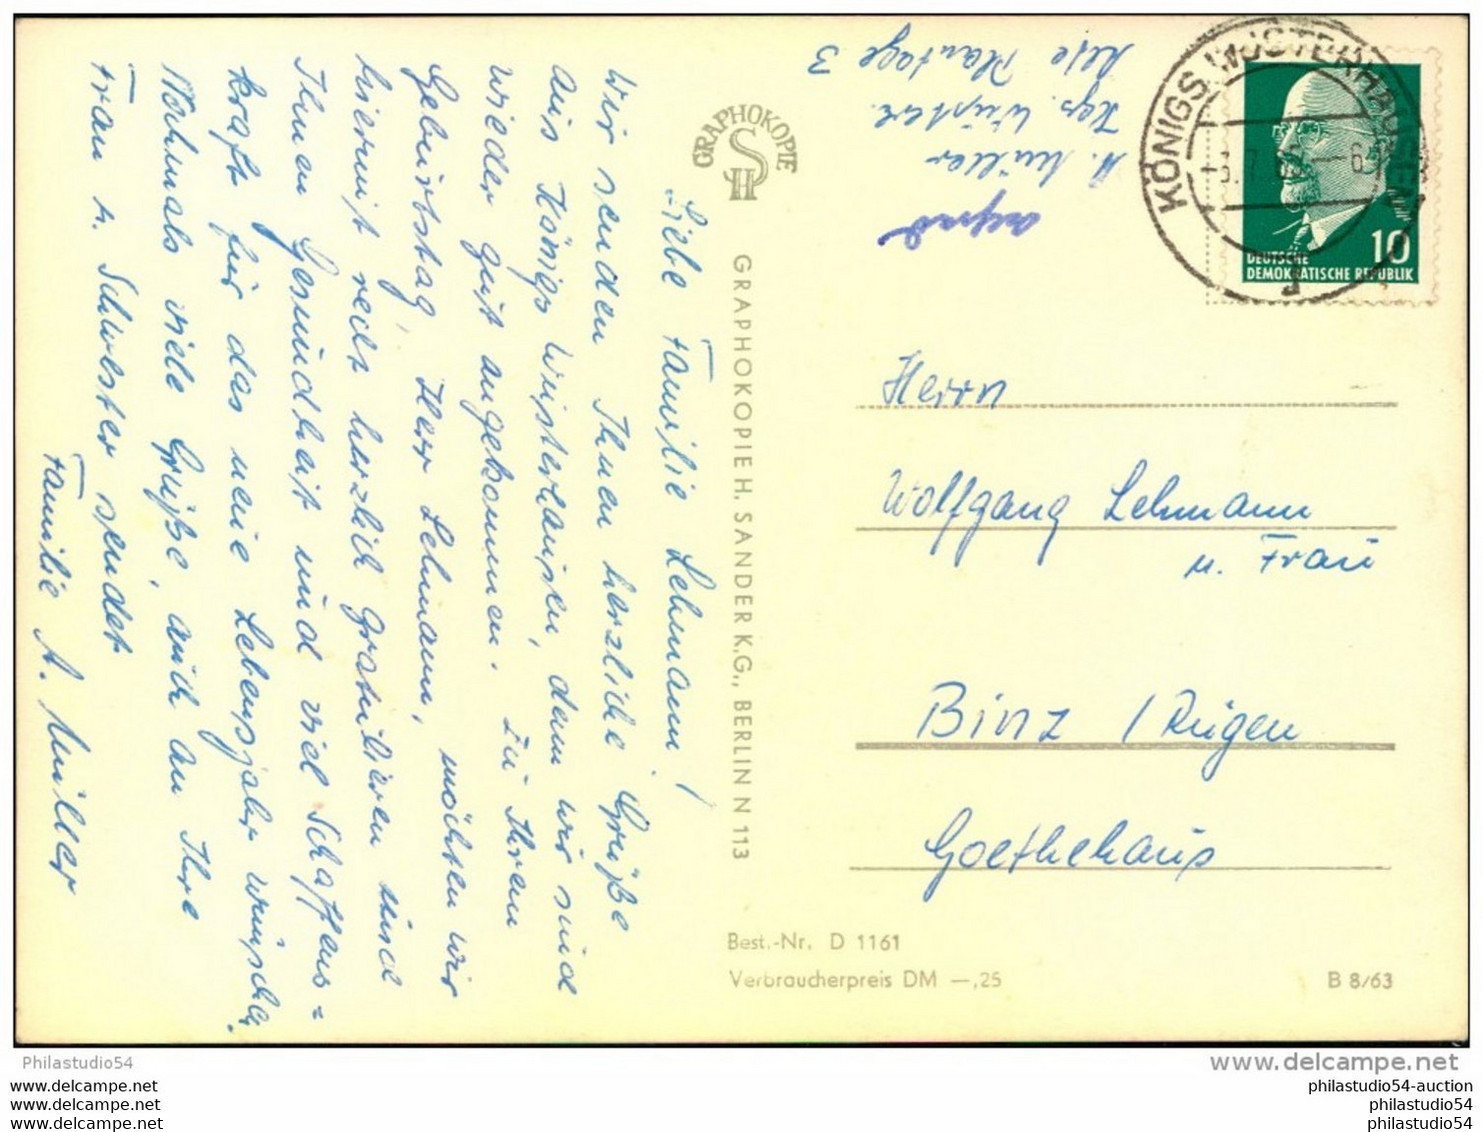 Liebe Familie Lehmann!
Wir senden Ihnen herzliche Grüße
aus Königs Wusterhausen, dem wir sind
wieder gut angekommen. Zu Ihrem
Geburtstag, Herr Lehmann, möchten wir
hiermit recht herzlich gratulieren und
Ihnen Gesundheit und viel Schaffens=
kraft für das neue Lebensjahr wünschen.
Nochmals viele Grüße, auch an Ihre
Frau u. Schwester sendet
Familie A. Müller
GRAPHOKOPIE
HS
GRAPHOKOPIE H. SANDER K.G., BERLIN N 113
A. Müller
Kgs. Wusterh.
Alte Plantage 3
KÖNIGS WUSTERHAUSEN
10
DEUTSCHE
DEMOKRATISCHE REPUBLIK
Herrn
Wolfgang Lehmann
u. Frau
Binz / Rügen
Goethehaus
Best.-Nr. D 1161
Verbraucherpreis DM —,25
B 8/63
Philastudio54
www.delcampe.net
www.delcampe.net
www.delcampe.net
www.delcampe.net
philastudio54-auction
philastudio54
philastudio54